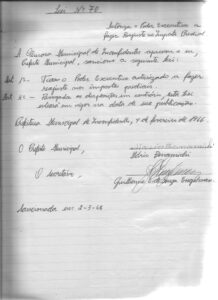 Lei Nº 70
Autoriza o Poder Executivo a
fazer Reajuste no Imposto Predial
A Câmara Municipal de Inconfidentes aprovou e eu,
Prefeito Municipal, sanciono a seguinte lei:
Art. 1º - Fica o Poder Executivo autorizado a fazer
reajuste nos impostos prediais.
Art. 2º - Revogadas as disposições em contrário, esta lei
entrará em vigor na data de sua publicação.
Prefeitura Municipal de Inconfidentes, 4 de fevereiro de 1966.
O Prefeito Municipal,
O secretário,
Guilherme de Souza
Sancionada em: 2-3-66